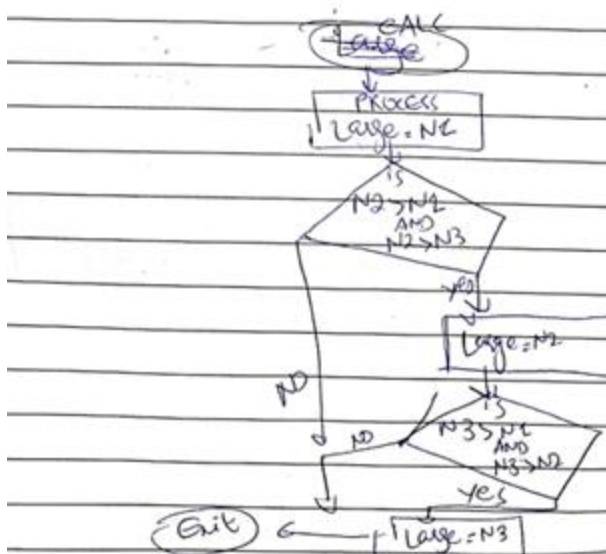 CALC
Large
PROCESS
Large = N1
is
N2 > N1
AND
N2 > N3
yes
Large = N2
NO
is
N3 > N1
AND
N3 > N2
NO
yes
Large = N3
Exit